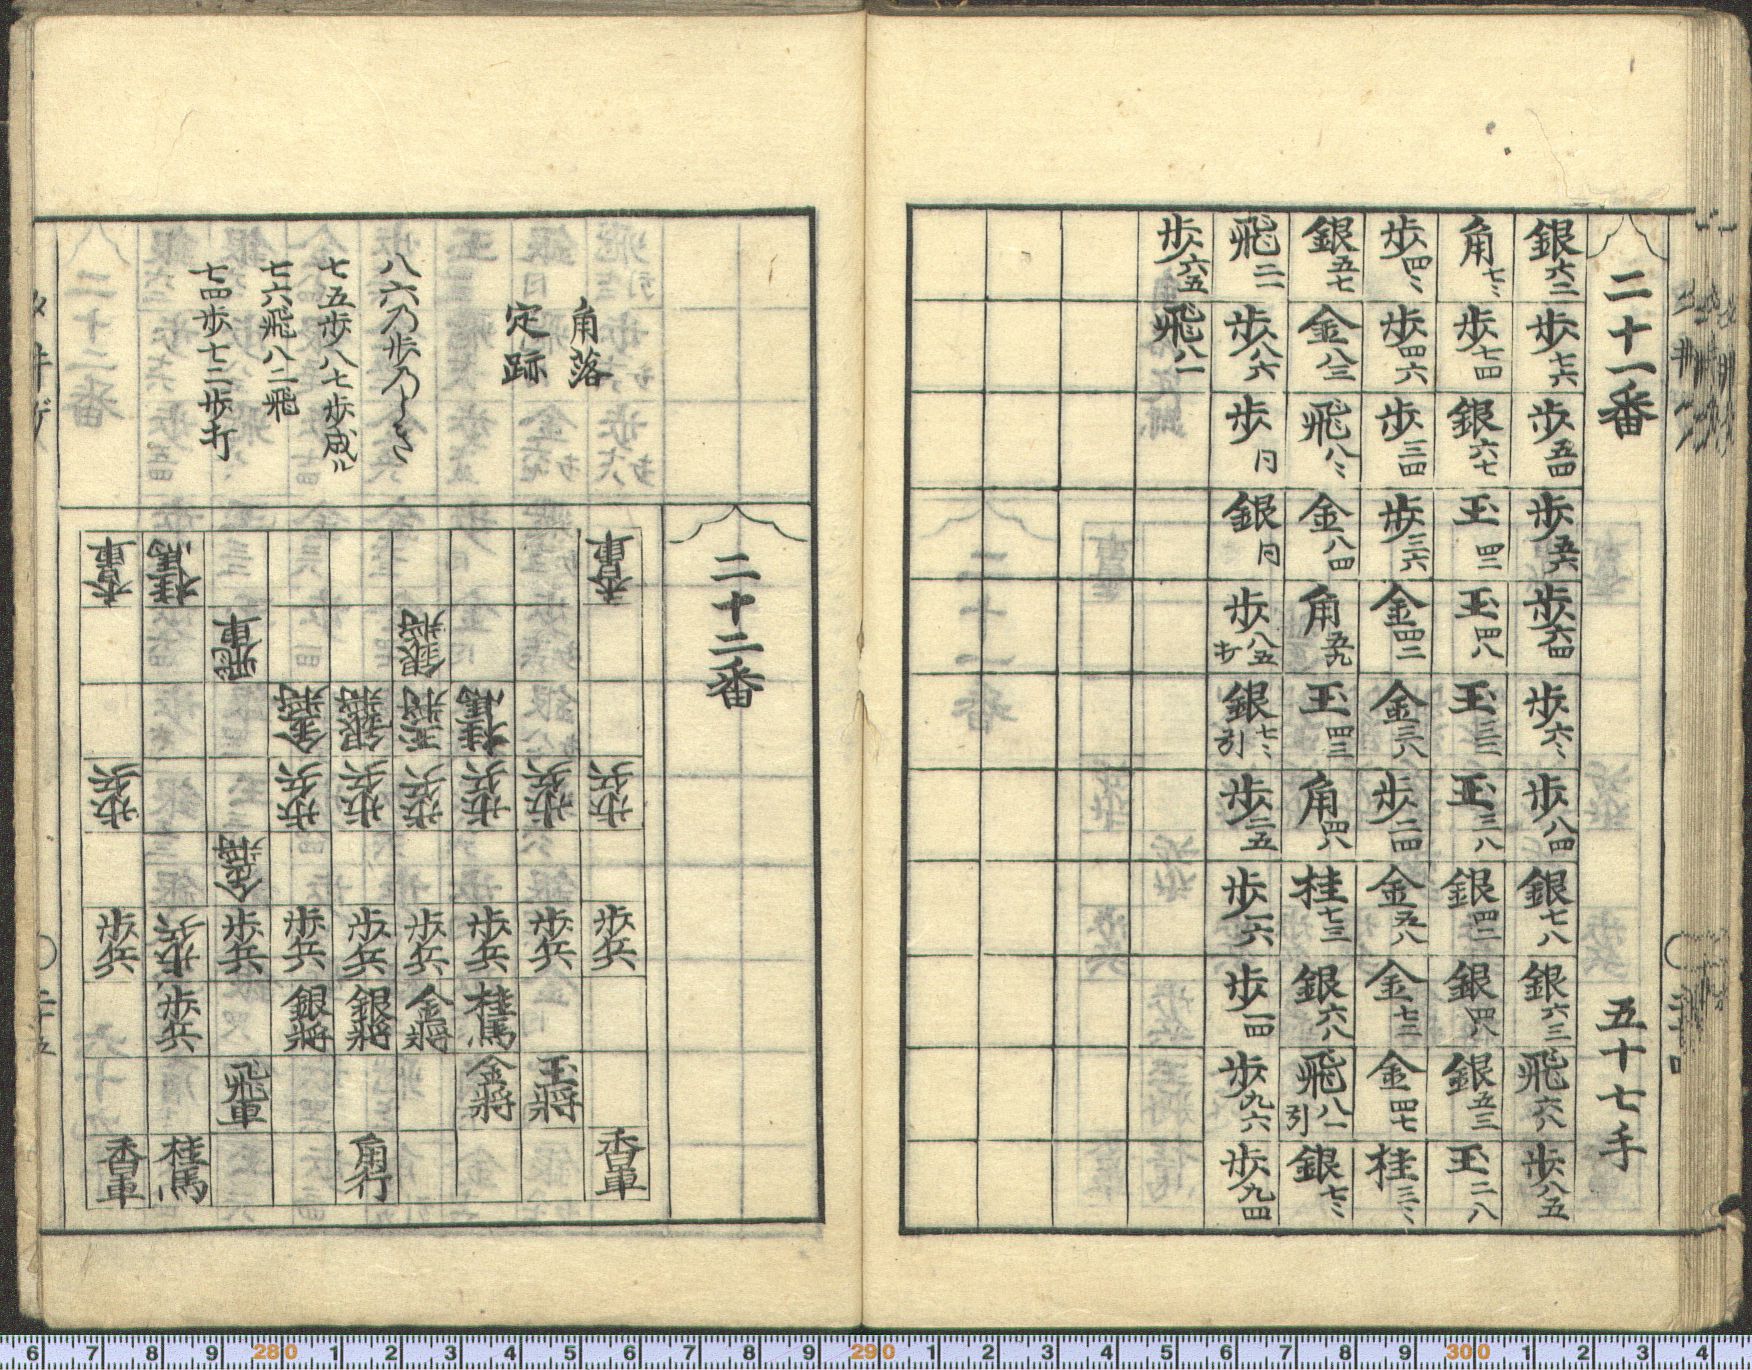 二十一番 五十七手
銀六二 歩七六 歩五四 歩五六 歩六四 歩六〻 歩八四 銀七八 銀六三 飛六八 歩八五
角七〻 歩七四 銀六七 玉四二 玉四八 玉三二 玉三八 銀四二 銀四八 銀五三 玉二八
歩四〻 歩四六 歩三四 歩三六 金四二 金三八 歩二四 金五八 金七二 金四七 桂三〻
銀五七 金八三 飛八〻 金八四 角五九 玉四三 角四八 桂七三 銀六八 飛八一引 銀七〻
飛二一 歩八六 歩同 銀同 歩八五打 銀七〻引 歩二五 歩一六 歩一四 歩九六 歩九四
歩六五 飛八一
二十二番
角落
定跡
八六乃歩乃とき
七五歩八七歩成ル
七六飛八二飛
七四歩七二歩打
香車 歩兵 歩兵 香車
歩兵 歩兵 玉將
桂馬 歩兵 歩兵 桂馬 金將
銀将 玉将 歩兵 歩兵 金将
銀将 歩兵 歩兵 銀将 角行
金将 歩兵 歩兵 銀将
飛車 金将 歩兵 飛車
桂馬 歩兵 歩兵 桂馬
香車 歩兵 歩兵 香車
6 7 8 9 280 1 2 3 4 5 6 7 8 9 290 1 2 3 4 5 6 7 8 9 300 1 2 3 4